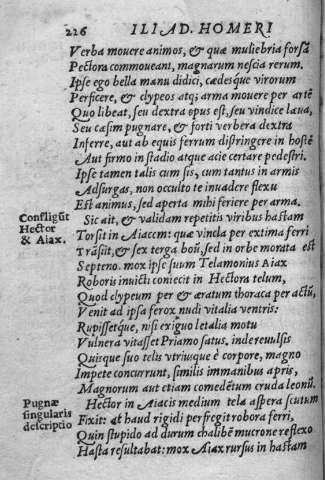 226 ILIAD. HOMERI
Verba mouere animos, & quæ muliebria forsā
Pectora commoueant, magnarum nescia rerum.
Ipse ego bella manu didici, cædesque virorum
Perficere, & clypeos atq; arma mouere per artē
Quo libeat, seu dextra opus est, seu vindice læua,
Seu cæsim pugnare, & forti verbera dextra
Inferre, aut ab equis ferrum distringere in hostē
Aut firmo in stadio atque acie certare pedestri.
Ipse tamen talis cum sis, cum tantus in armis
Adsurgas, non occulto te inuadere flexu
Est animus, sed aperta mihi feriere per arma.
Confligūt
Hector
& Aiax.
Sic ait, & validam repetitis viribus hastam
Torsit in Aiacem: quæ vincla per extima ferri
Trāsiit, & sex terga boū, sed in orbe morata est
Septeno. mox ipse suum Telamonius Aiax
Roboris inuicti coniecit in Hectora telum,
Quod clypeum per & æratum thoraca per actū,
Venit ad ipsa ferox nudi vitalia ventris:
Rupissetque, nisi exiguo letalia motu
Vulnera vitasset Priamo satus. inde reuulsis
Quisque suo telis vtriusque è corpore, magno
Impete concurrunt, similis immanibus apris,
Magnorum aut etiam comedētum cruda leonū.
Pugnæ
singularis
descriptio
Hector in Aiacis medium tela aspera scutum
Fixit: at haud rigidi perfregit robora ferri,
Quin stupido ad durum chalibē mucrone reflexo
Hasta resultabat: mox Aiax rursus in hastam